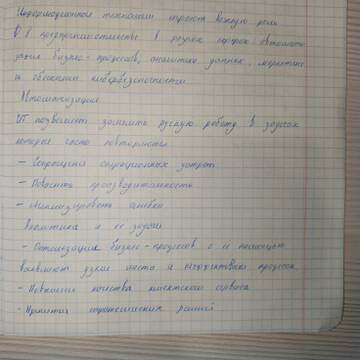 Информационные технологии играют важную роль
в предпринимательстве в разных сферах автомати
зация бизнес-процессов, аналитика данных, маркетинг
и обеспечения кибербезопасности
Автоматизация
ИТ позволяет заменить ручную работу в задачах
которые часто повторяются
- Сокращения операционных затрат
- Повысить производительность
- Минимизировать ошибки
Аналитика и её задачи
- Оптимизация бизнес-процессов с её помощью
выявляют узкие места и неэффективные процессы
- Повышения качества клиентского сервиса
- Принятия стратегических решений